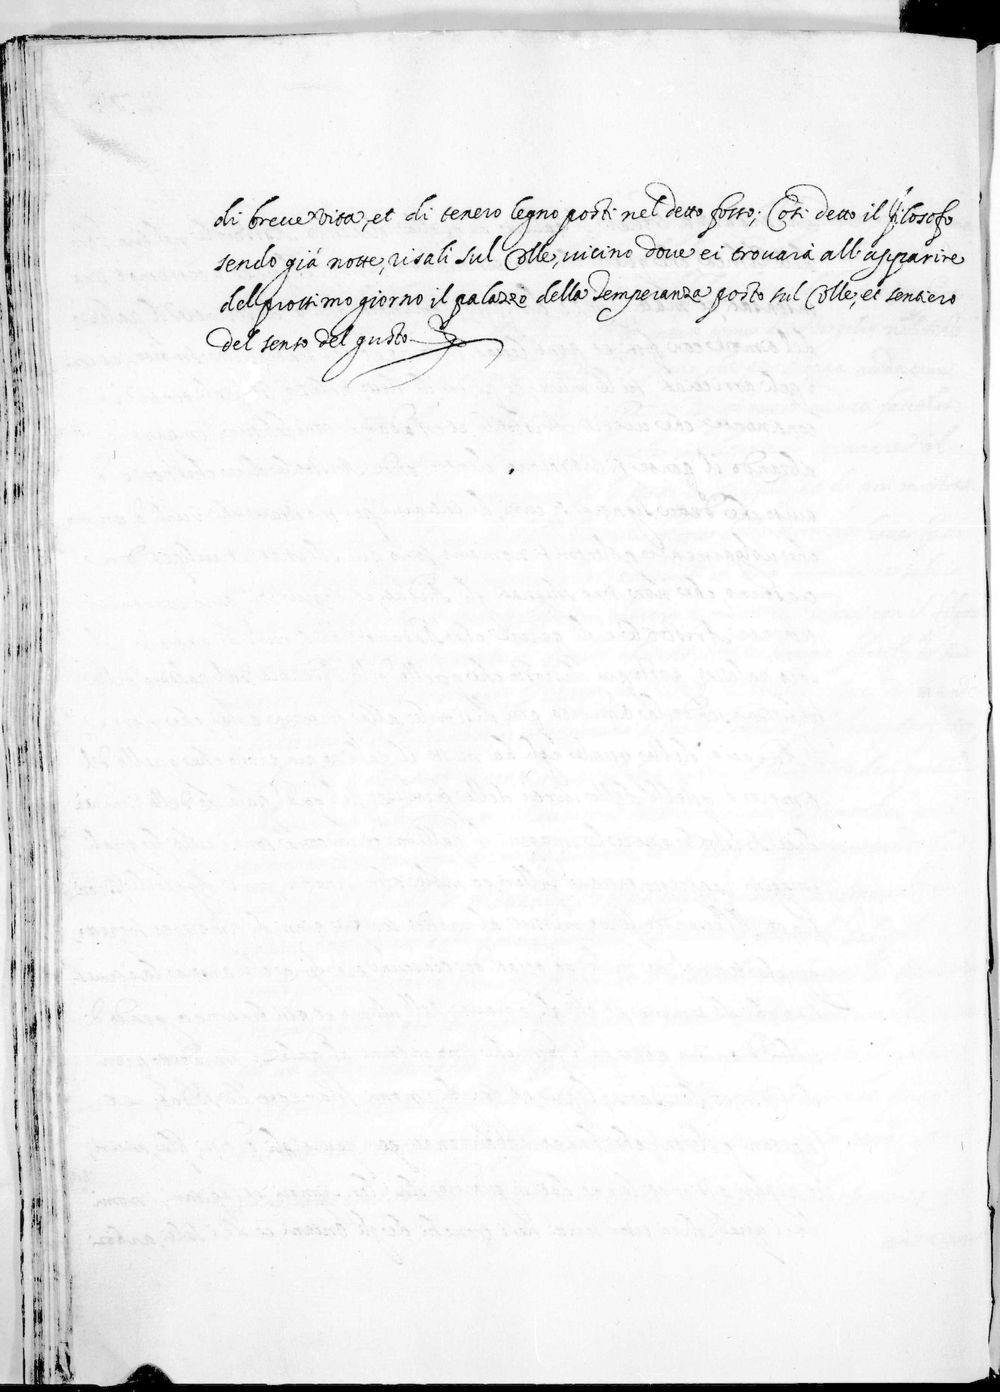 di breue vita, et di tenero legno posti nel detto fosso; Così detto il filosofo
sendo già notte, risali sul Colle, uicino doue ei trouarà all'apparire
del prossimo giorno il palazzo della Temperanza posto sul Colle, et sentiero
del senso del gusto.